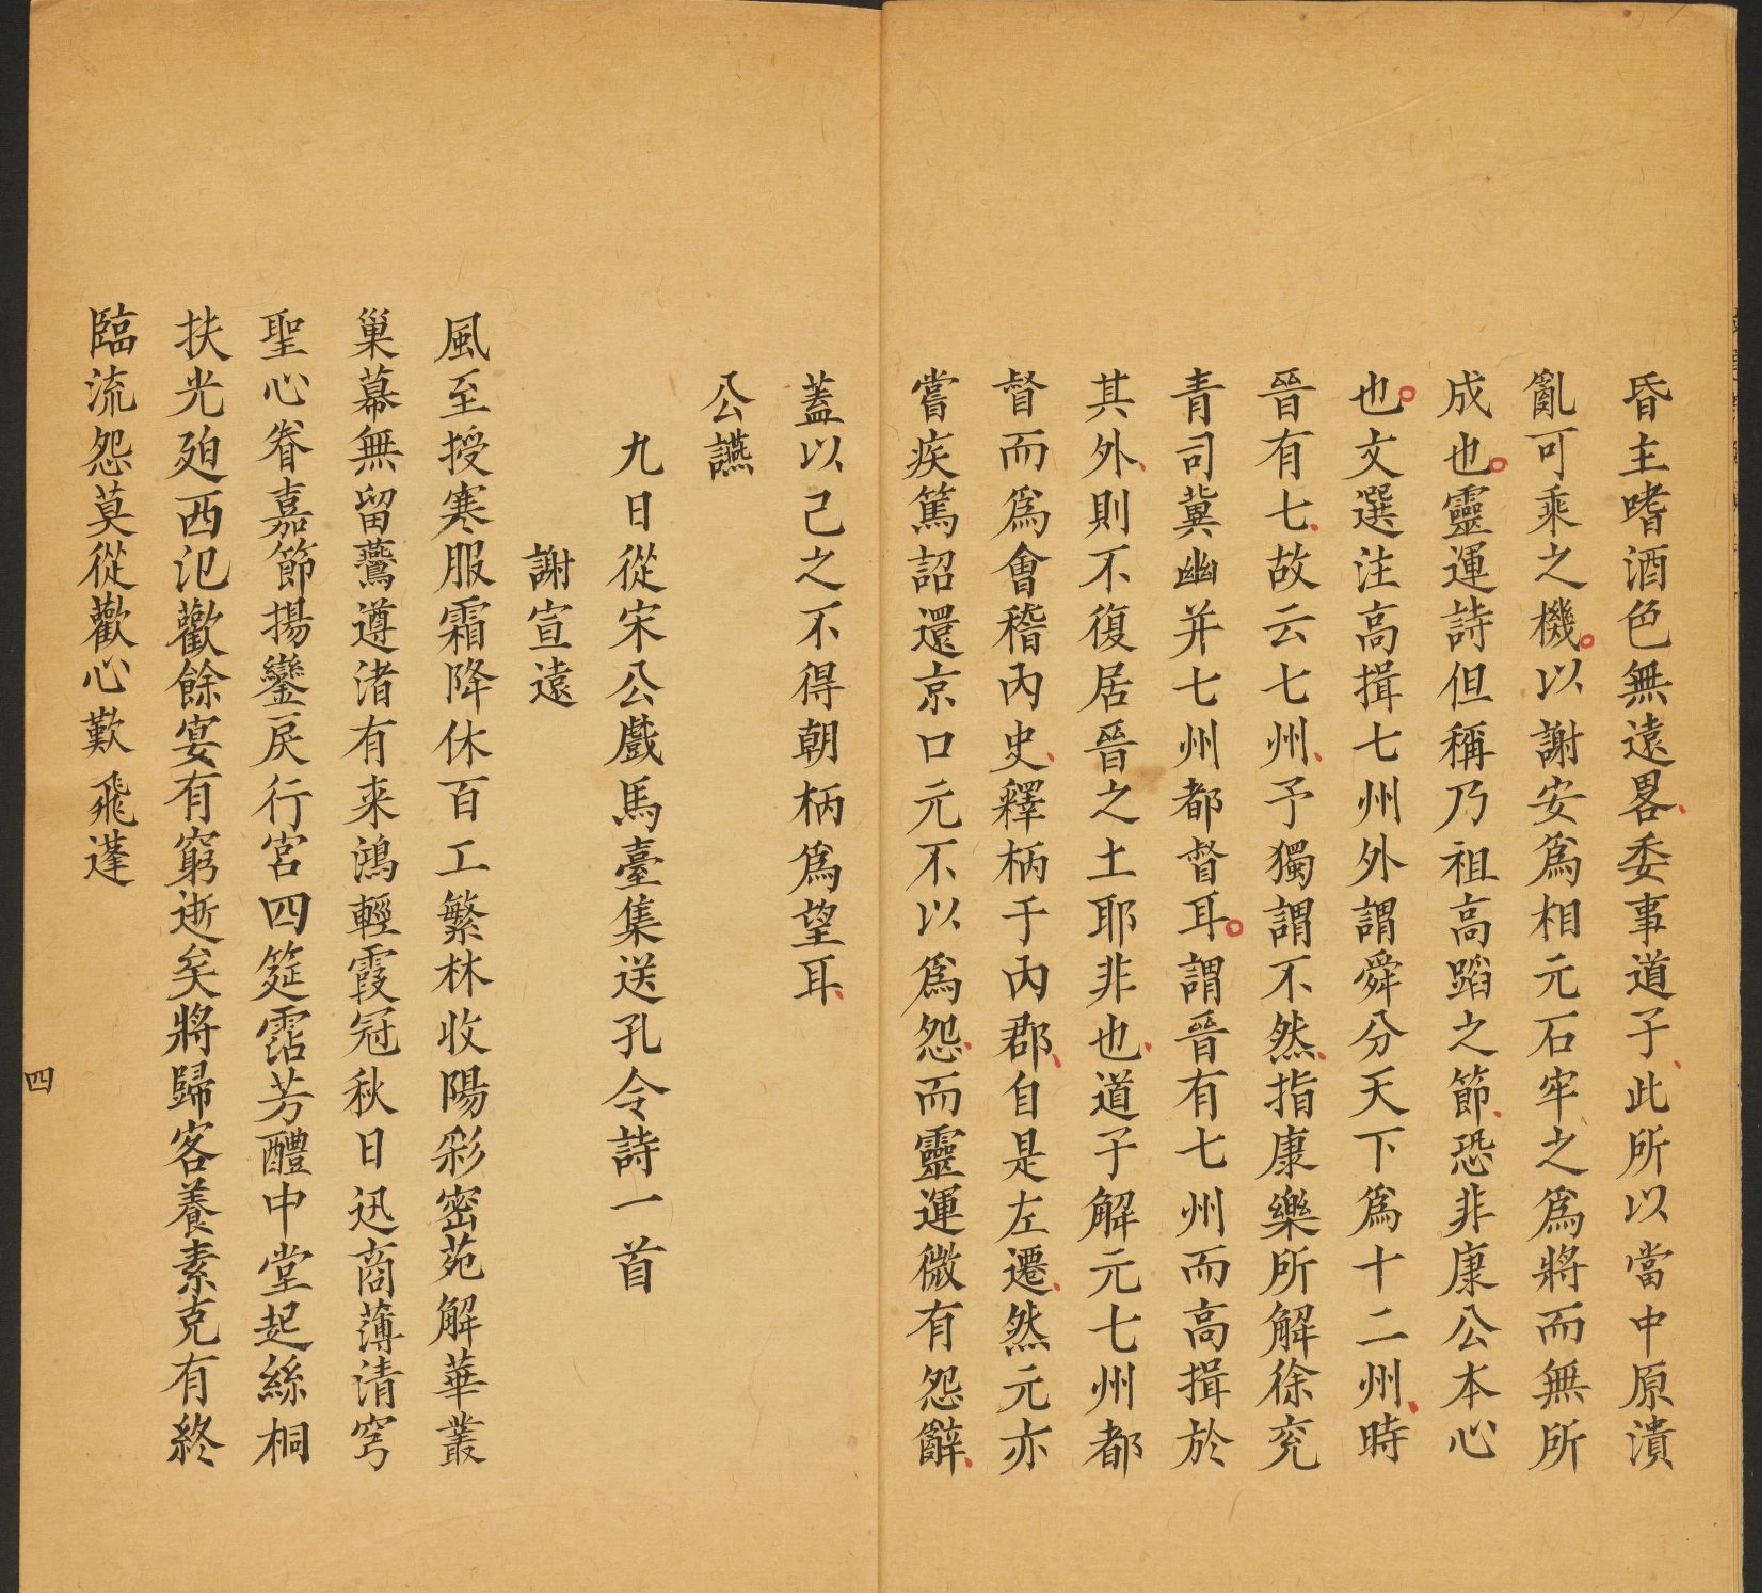 昏主嗜酒色無遠畧委事道子此所以當中原潰
亂可乘之機以謝安為相元石牢之為將而無所
成也靈運詩但稱乃祖高蹈之節恐非康公本心
也文選注高揖七州外謂舜分天下為十二州時
晉有七故云七州予獨謂不然指康樂所解徐兖
青司冀幽并七州都督耳謂晉有七州而高揖於
其外則不復居晉之土耶非也道子解元七州都
督而為會稽內史釋柄于內郡自是左遷然元亦
嘗疾篤詔還京口元不以為怨而靈運微有怨辭
蓋以己之不得朝柄為望耳
公讌
九日從宋公戲馬臺集送孔令詩一首
謝宣遠
風至授寒服霜降休百工繁林收陽彩密苑解華叢
巢幕無留鷰遵渚有来鴻輕霞冠秋日迅商薄清穹
聖心眷嘉節揚鑾戾行宮四筵霑芳醴中堂起絲桐
扶光廹西汜歡餘宴有窮逝矣將歸客養素克有終
臨流怨莫從歡心歎飛蓬
四